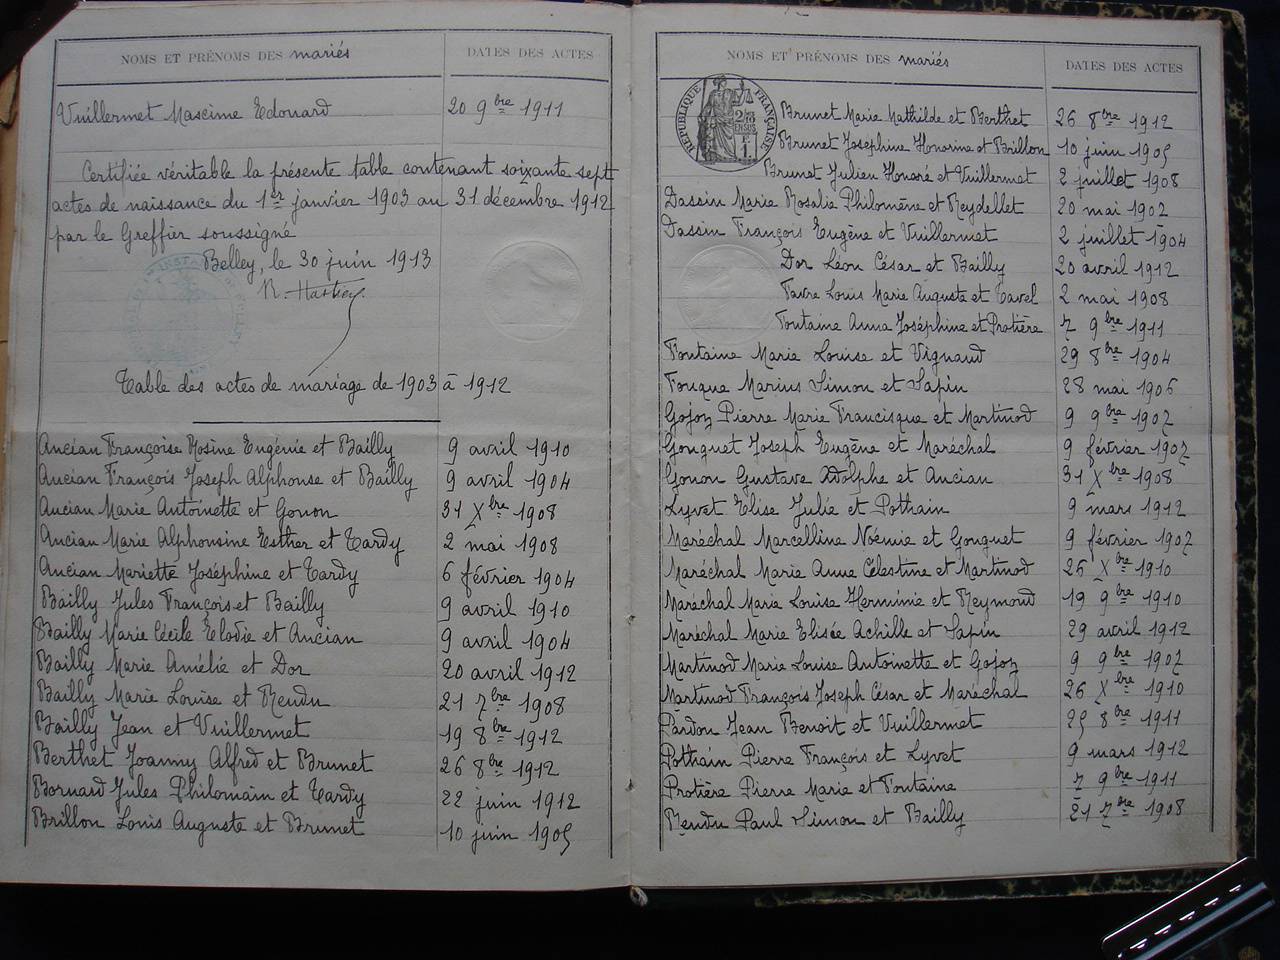 NOMS ET PRÉNOMS DES mariés DATES DES ACTES
Vuillermet Maxime Edouard 20 9bre 1911
Certifiée véritable la présente table contenant soixante sept
actes de naissance du 1er janvier 1903 au 31 décembre 1912
par le Greffier soussigné
Belley, le 30 juin 1913
Table des actes de mariage de 1903 à 1912
Ancian Françoise Rosine Eugénie et Bailly 9 avril 1910
Ancian François Joseph Alphonse et Bailly 9 avril 1904
Ancian Marie Antoinette et Gonon 31 Xbre 1908
Ancian Marie Alphonsine Esther et Tardy 2 mai 1908
Ancian Mariette Joséphine et Tardy 6 février 1904
Bailly Jules François et Bailly 9 avril 1910
Bailly Marie Cécile Elodie et Ancian 9 avril 1904
Bailly Marie Amélie et Dor 20 avril 1912
Bailly Marie Louise et Rendu 21 7bre 1908
Bailly Jean et Vuillermet 19 8bre 1912
Berthet Joanny Alfred et Brunet 26 8bre 1912
Bornard Jules Philomain et Tardy 22 juin 1912
Brillon Louis Auguste et Brunet 10 juin 1905
NOMS ET PRÉNOMS DES mariés DATES DES ACTES
RÉPUBLIQUE FRANÇAISE
Brunet Marie Mathilde et Berthet 26 8bre 1912
Brunet Joséphine Honorine et Brillon 10 juin 1905
Brunet Julien Honoré et Vuillermet 2 juillet 1908
Dassin Marie Rosalie Philomène et Reydellet 20 mai 1907
Dassin François Eugène et Vuillermet 2 juillet 1904
Dor Léon César et Bailly 20 avril 1912
Favre Louis Marie Auguste et Cavel 2 mai 1908
Fontaine Anna Joséphine et Protière 7 9bre 1911
Fontaine Marie Louise et Vignaud 29 8bre 1904
Fouque Marius Simon et Sapin 28 mai 1906
Gojoz Pierre Marie Francisque et Martinod 9 9bre 1907
Gonguet Joseph Eugène et Maréchal 9 février 1907
Gonon Gustave Adolphe et Ancian 31 Xbre 1908
Lyvet Elise Julie et Pothain 9 mars 1912
Maréchal Marcelline Noémie et Gonguet 9 février 1907
Maréchal Marie Anne Célestine et Martinod 26 Xbre 1910
Maréchal Marie Louise Herminie et Reymond 19 9bre 1910
Maréchal Marie Elisée Achille et Sapin 29 avril 1912
Martinod Marie Louise Antoinette et Gojoz 9 9bre 1907
Martinod François Joseph César et Maréchal 26 Xbre 1910
Pardon Jean Benoit et Vuillermet 25 8bre 1911
Pothain Pierre François et Lyvet 9 mars 1912
Protière Pierre Marie et Fontaine 7 9bre 1911
Rendu Paul Simon et Bailly 21 7bre 1908